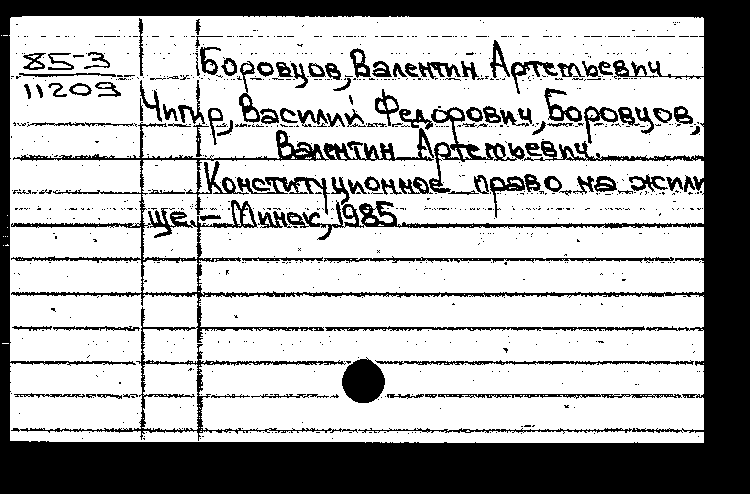 85-3
11209
Боровцов, Валентин Артемьевич.
Чигир, Василий Федорович, Боровцов,
Валентин Артемьевич.
Конституционное право на жили
ще. – Минск, 1985.